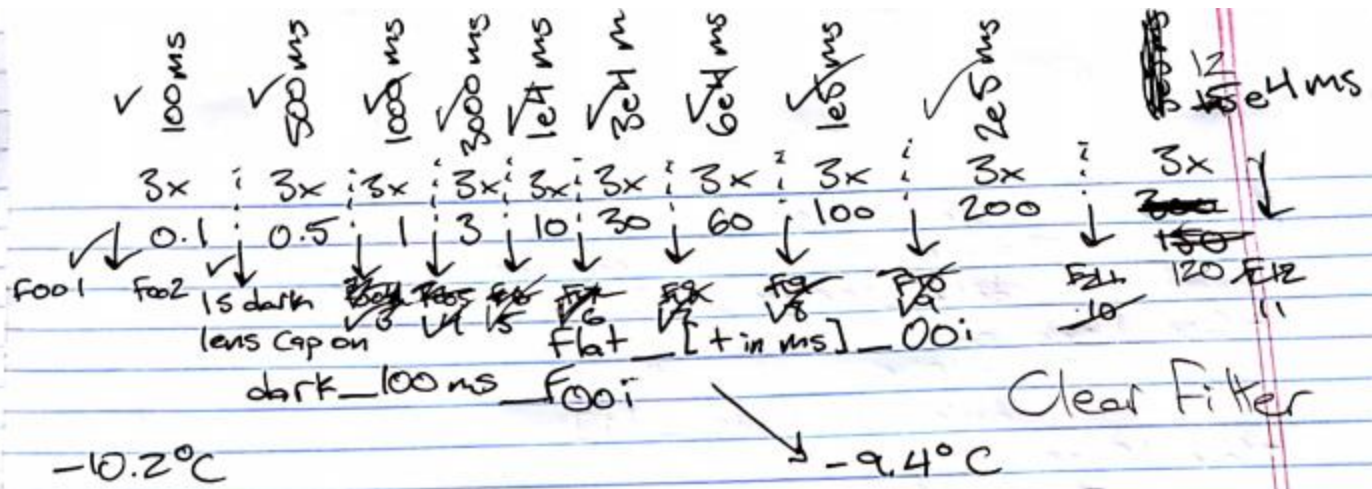 ✓ 100 ms ✓ 500 ms ✓ 1000 ms ✓ 3000 ms ✓ 1e4 ms ✓ 3e4 m ✓ 6e4 m ✓ 1e5 ms ✓ 2e5 ms 12 e4 ms
3x 3x 3x 3x 3x 3x 3x 3x 3x 3x
0.1 0.5 1 3 10 30 60 100 200 300
150
F001 F002 is dark F11 120 F12
✓3 ✓4 ✓5 ✓6 ✓7 ✓8 ✓9 10 11
lens cap on Flat_[t in ms]_00i
dark_100ms_F00i Clear Filter
-10.2°C -9.4°C